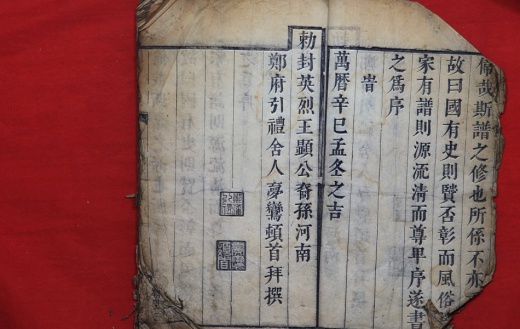 偹哉斯譜之修也所係不亦
故曰國有史則賢否彰而風俗
家有譜則源流清而尊卑序遂書
之為序
旹
萬曆辛巳孟冬之吉
勅封英烈王顯公裔孫河南
鄭府引禮舍人夢鸞頓首拜撰